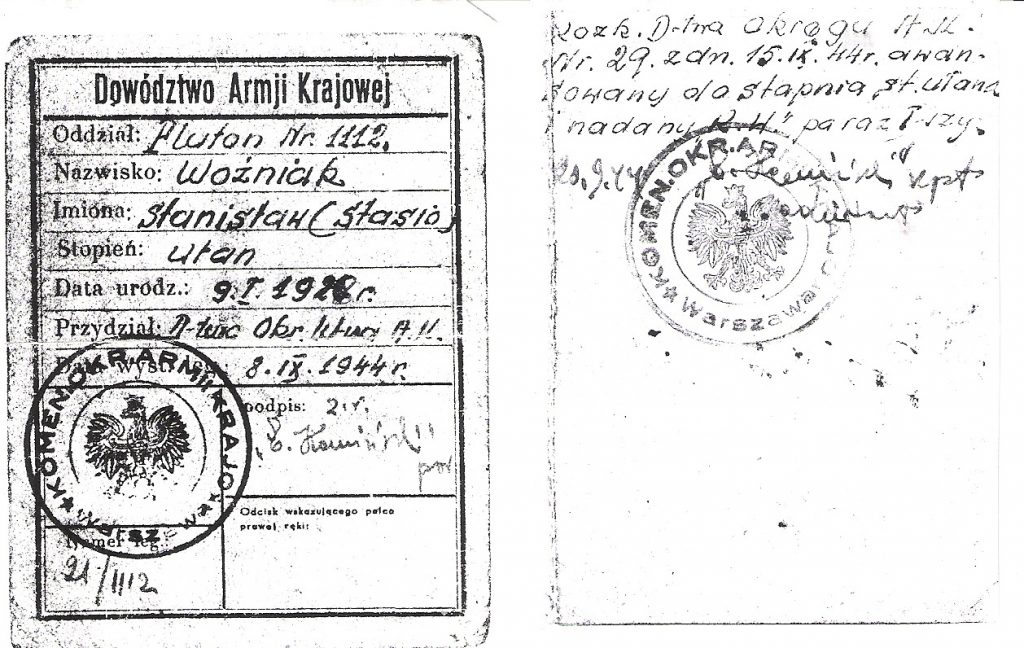 Dowództwo Armji Krajowej
Oddział: Pluton Nr. 1112.
Nazwisko: Woźniak
Imiona: Stanisław (Stasio)
Stopień: ułan
Data urodz.: 9.I.192 r.
Przydział: Okr. A.K.
Data 8.IX.1944r.
podpis: z.r.
"
Kamiński"
por
KOMEN.OKR.ARMII KRAJO
Odcisk wskazującego palca
prawej ręki:
Numer leg.:
91/1112
Rozk. D-twa Okręgu A.K.
Nr. 29. zdn. 15.IX.44r. awan-
sowany do stopnia st. ułana
i nadany K.W." par
20.9.44 Kamiński" kpt
KOMEN.OKR.AR
Warszawa